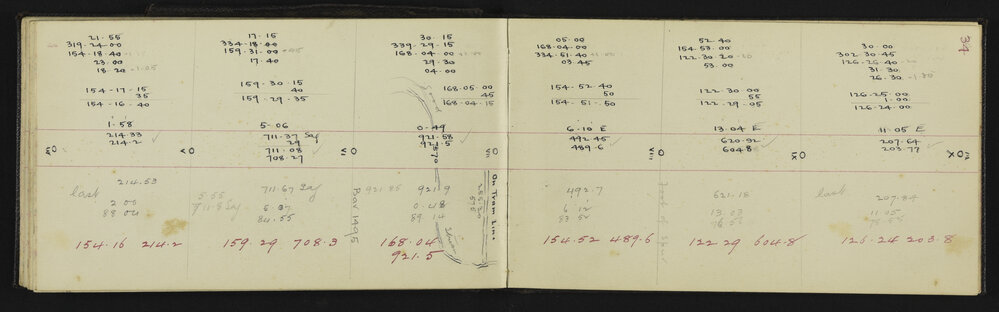 21.55
319.24.00
154.18.40
23.00
18.20 -1.05
154-17-15
35
154-16-40
1.58
214.33
214.2
IV
214.53
leak
2.00
88.04
154.16 214.2
17.15
334.18.00
159.31.00
17.40
159.30.15
40
159.29.35
5.06
711.37 Say
29
711.08
708.27
V
711.67 Say
5.55
711.8 Say
5.07
84.55
159.29 708.3
30.15
339.29.15
168.04.00
29.30
04.00
168.05.00
45
168.04.15
0.49
921.58
921.5
VI
921.85 921.9
0.48
89.14
168.04
921.5
Bar 1495
On Tram Line
VII
05.00
168.04.00
334.51.40
03.45
154.52.40
50
154.51.50
6.10 E
492.45
489.6
VIII
492.7
6.12
83.52
154.52 489.6
52.40
154.53.00
122.30.20
53.00
122.30.00
55
122.29.05
13.04 E
620.92
604.8
IX
621.18
13.03
122.29 604.8
34
30.00
302.30.45
126.26.40
31.30
26.30 -1.30
126.25.00
1.00
126.24.00
11.05 E
207.64
203.77
X
leak
207.84
11.05
126.24 203.8